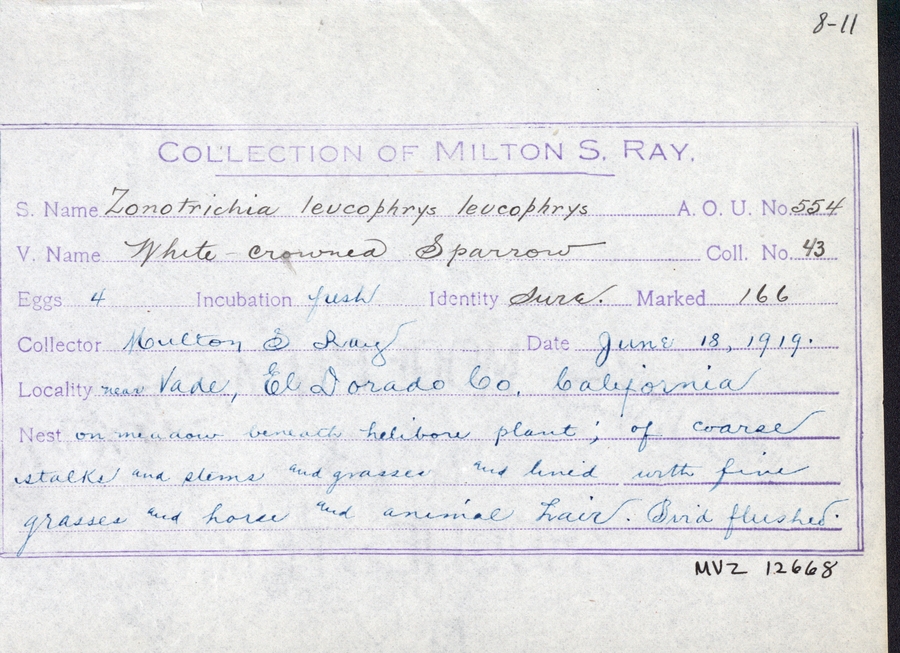 8-11
COLLECTION OF MILTON S. RAY.
S. Name Zonotrichia leucophrys leucophrys A. O. U. No. 554
V. Name White-crowned Sparrow Coll. No. 43
Eggs 4 Incubation fresh Identity Sure. Marked 166
Collector Milton S Ray Date June 18, 1919.
Locality near Vade, El Dorado Co. California
Nest on meadow beneath helibore plant; of coarse
stalks and stems and grasses and lined with fine
grasses and horse and animal hair. Bird flushed.
MVZ 12668